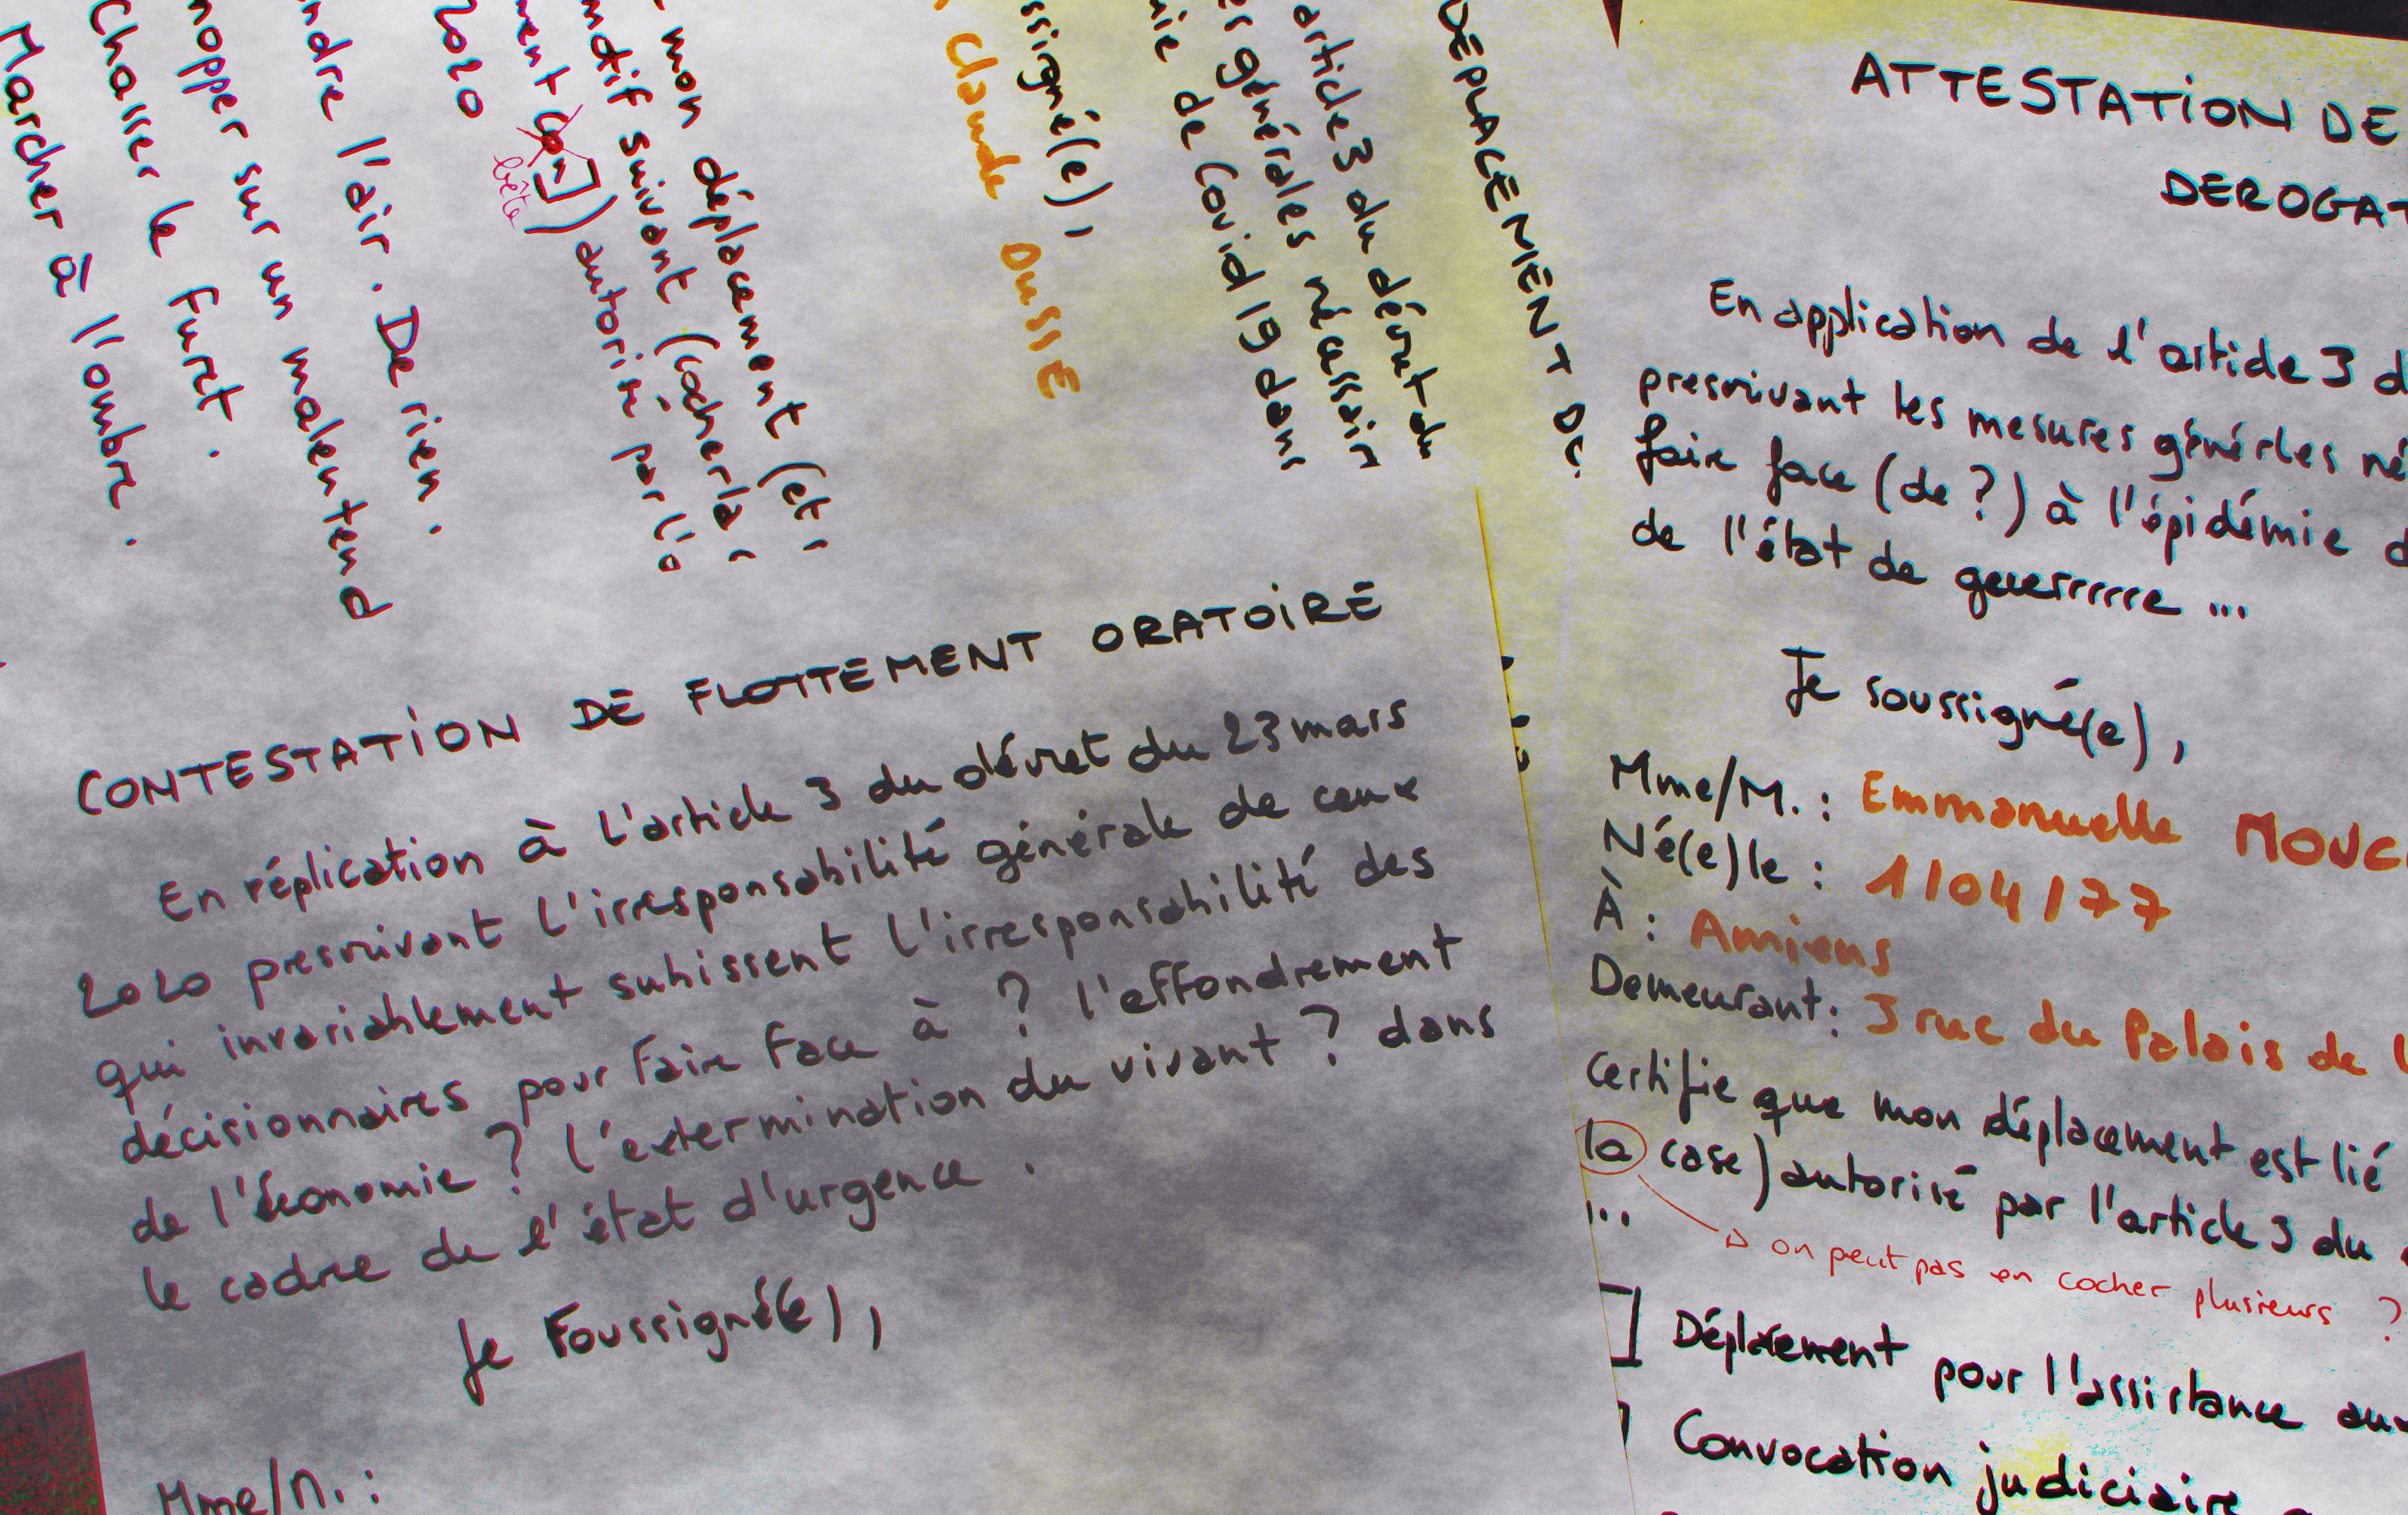 mon déplacement (et
motif suivant (cocher la
autorisé par l'
bête
2020
ndre l'air. De rien.
nopper sur un malentend
Chasser le Furet.
Marcher à l'ombre.
DÉPLACEMENT DÉ
article 3 du décret du
es générales nécessair
ie de Covid 19 dans
ssigné(e),
Claude DUSSE
CONTESTATION DE FLOTTEMENT ORATOIRE
En réplication à l'article 3 du décret du 23 mars
2020 prescrivant l'irresponsabilité générale de ceux
qui invariablement subissent l'irresponsabilité des
décisionnaires pour faire face à ? l'effondrement
de l'économie ? l'extermination du vivant ? dans
le cadre de l'état d'urgence.
Je Foussigné(e),
Mme/M. :
ATTESTATION DE
DEROGAT
En application de l'article 3 d
prescrivant les mesures générles né
faire face (de ?) à l'épidémie d
de l'état de guerrrrrre ...
Je soussigné(e),
Mme/M. : Emmanuelle MOUC
Né(e) le : 1/04/77
À : Amiens
Demeurant : 3 rue du Palais de l
certifie que mon déplacement est lié
la case) autorisé par l'article 3 du
...
on peut pas en cocher plusieurs ?
Déplacement pour l'assistance aux
Convocation judiciaire